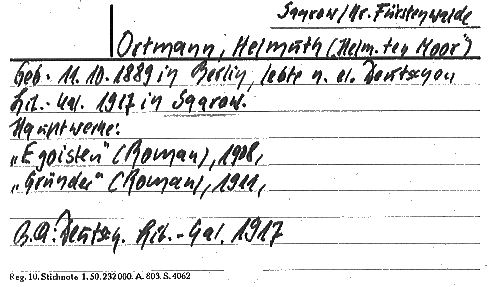 Saarow/Kr. Fürstenwalde
Ortmann, Helmuth („Helm. ten Moor")
Geb. 11.10.1889 in Berlin, lebte n. d. Deutschen
Lit.-Kal. 1917 in Saarow.
Hauptwerke:
„Egoisten" (Roman), 1908,
„Gründer" (Roman), 1911,
B.A: Deutsch. Lit.-Kal. 1917
Reg. 10. Stichnote 1. 50. 232000. A. 803. S. 4062